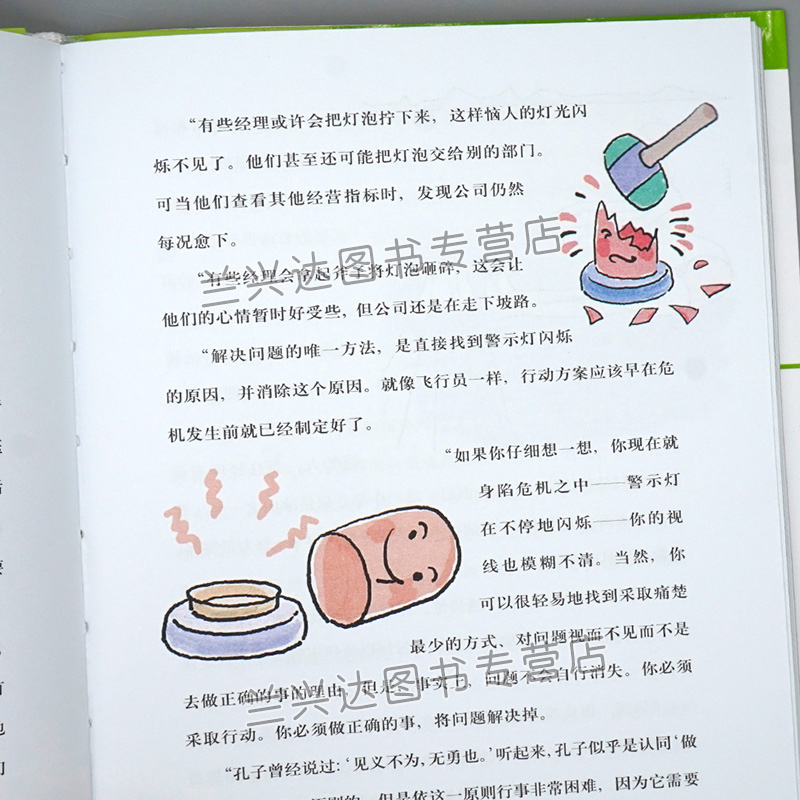 “有些经理或许会把灯泡拧下来，这样恼人的灯光闪
烁不见了。他们甚至还可能把灯泡交给别的部门。
可当他们查看其他经营指标时，发现公司仍然
每况愈下。
兰兴达图书专营店
“有些经理会拿起斧子将灯泡砸碎，这会让
他们的心情暂时好受些，但公司还是在走下坡路。
“解决问题的唯一方法，是直接找到警示灯闪烁
的原因，并消除这个原因。就像飞行员一样，行动方案应该早在危
机发生前就已经制定好了。
“如果你仔细想一想，你现在就
身陷危机之中——警示灯
在不停地闪烁——你的视
线也模糊不清。当然，你
可以很轻易地找到采取痛楚
最少的方式、对问题视而不见而不是
去做正确的事的理由，但是，事实上，问题不会自行消失。你必须
兰兴达图书专营店
采取行动。你必须做正确的事，将问题解决掉。
“孔子曾经说过：‘见义不为，无勇也。’听起来，孔子似乎是认同‘做
但是依这一原则行事非常困难，因为它需要